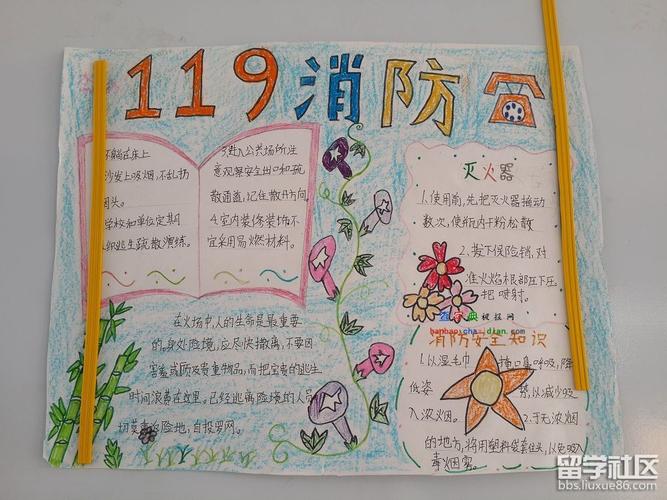 119消防
不躺在床上
沙发上吸烟,不乱扔
烟头。
学校和单位定期
组织逃生疏散演练。
3.进入公共场所注
意观察安全出口和疏
散通道,记住散开方向
4.室内装修装饰不
宜采用易燃材料。
灭火器
1.使用前,先把灭火器摇动
数次,使瓶内干粉松散
2.拔下保险销,对
准火焰根部压下压
把喷射。
板报网
banbao.chazidian.com
在火场中,人的生命是最重要
的。身处险境,应尽快撤离,不要因
害羞或顾及贵重物品,而把宝贵的逃生
时间浪费在这里。已经逃离险境的人员
切莫重返险地,自投罗网。
消防安全知识
1.以湿毛巾掩口鼻呼吸,降
低姿势,以减少吸
入浓烟。2.于无浓烟
的地方,将用塑料袋套住头,以免吸入
毒烟雾。
留学社区
bbs.liuxue86.com